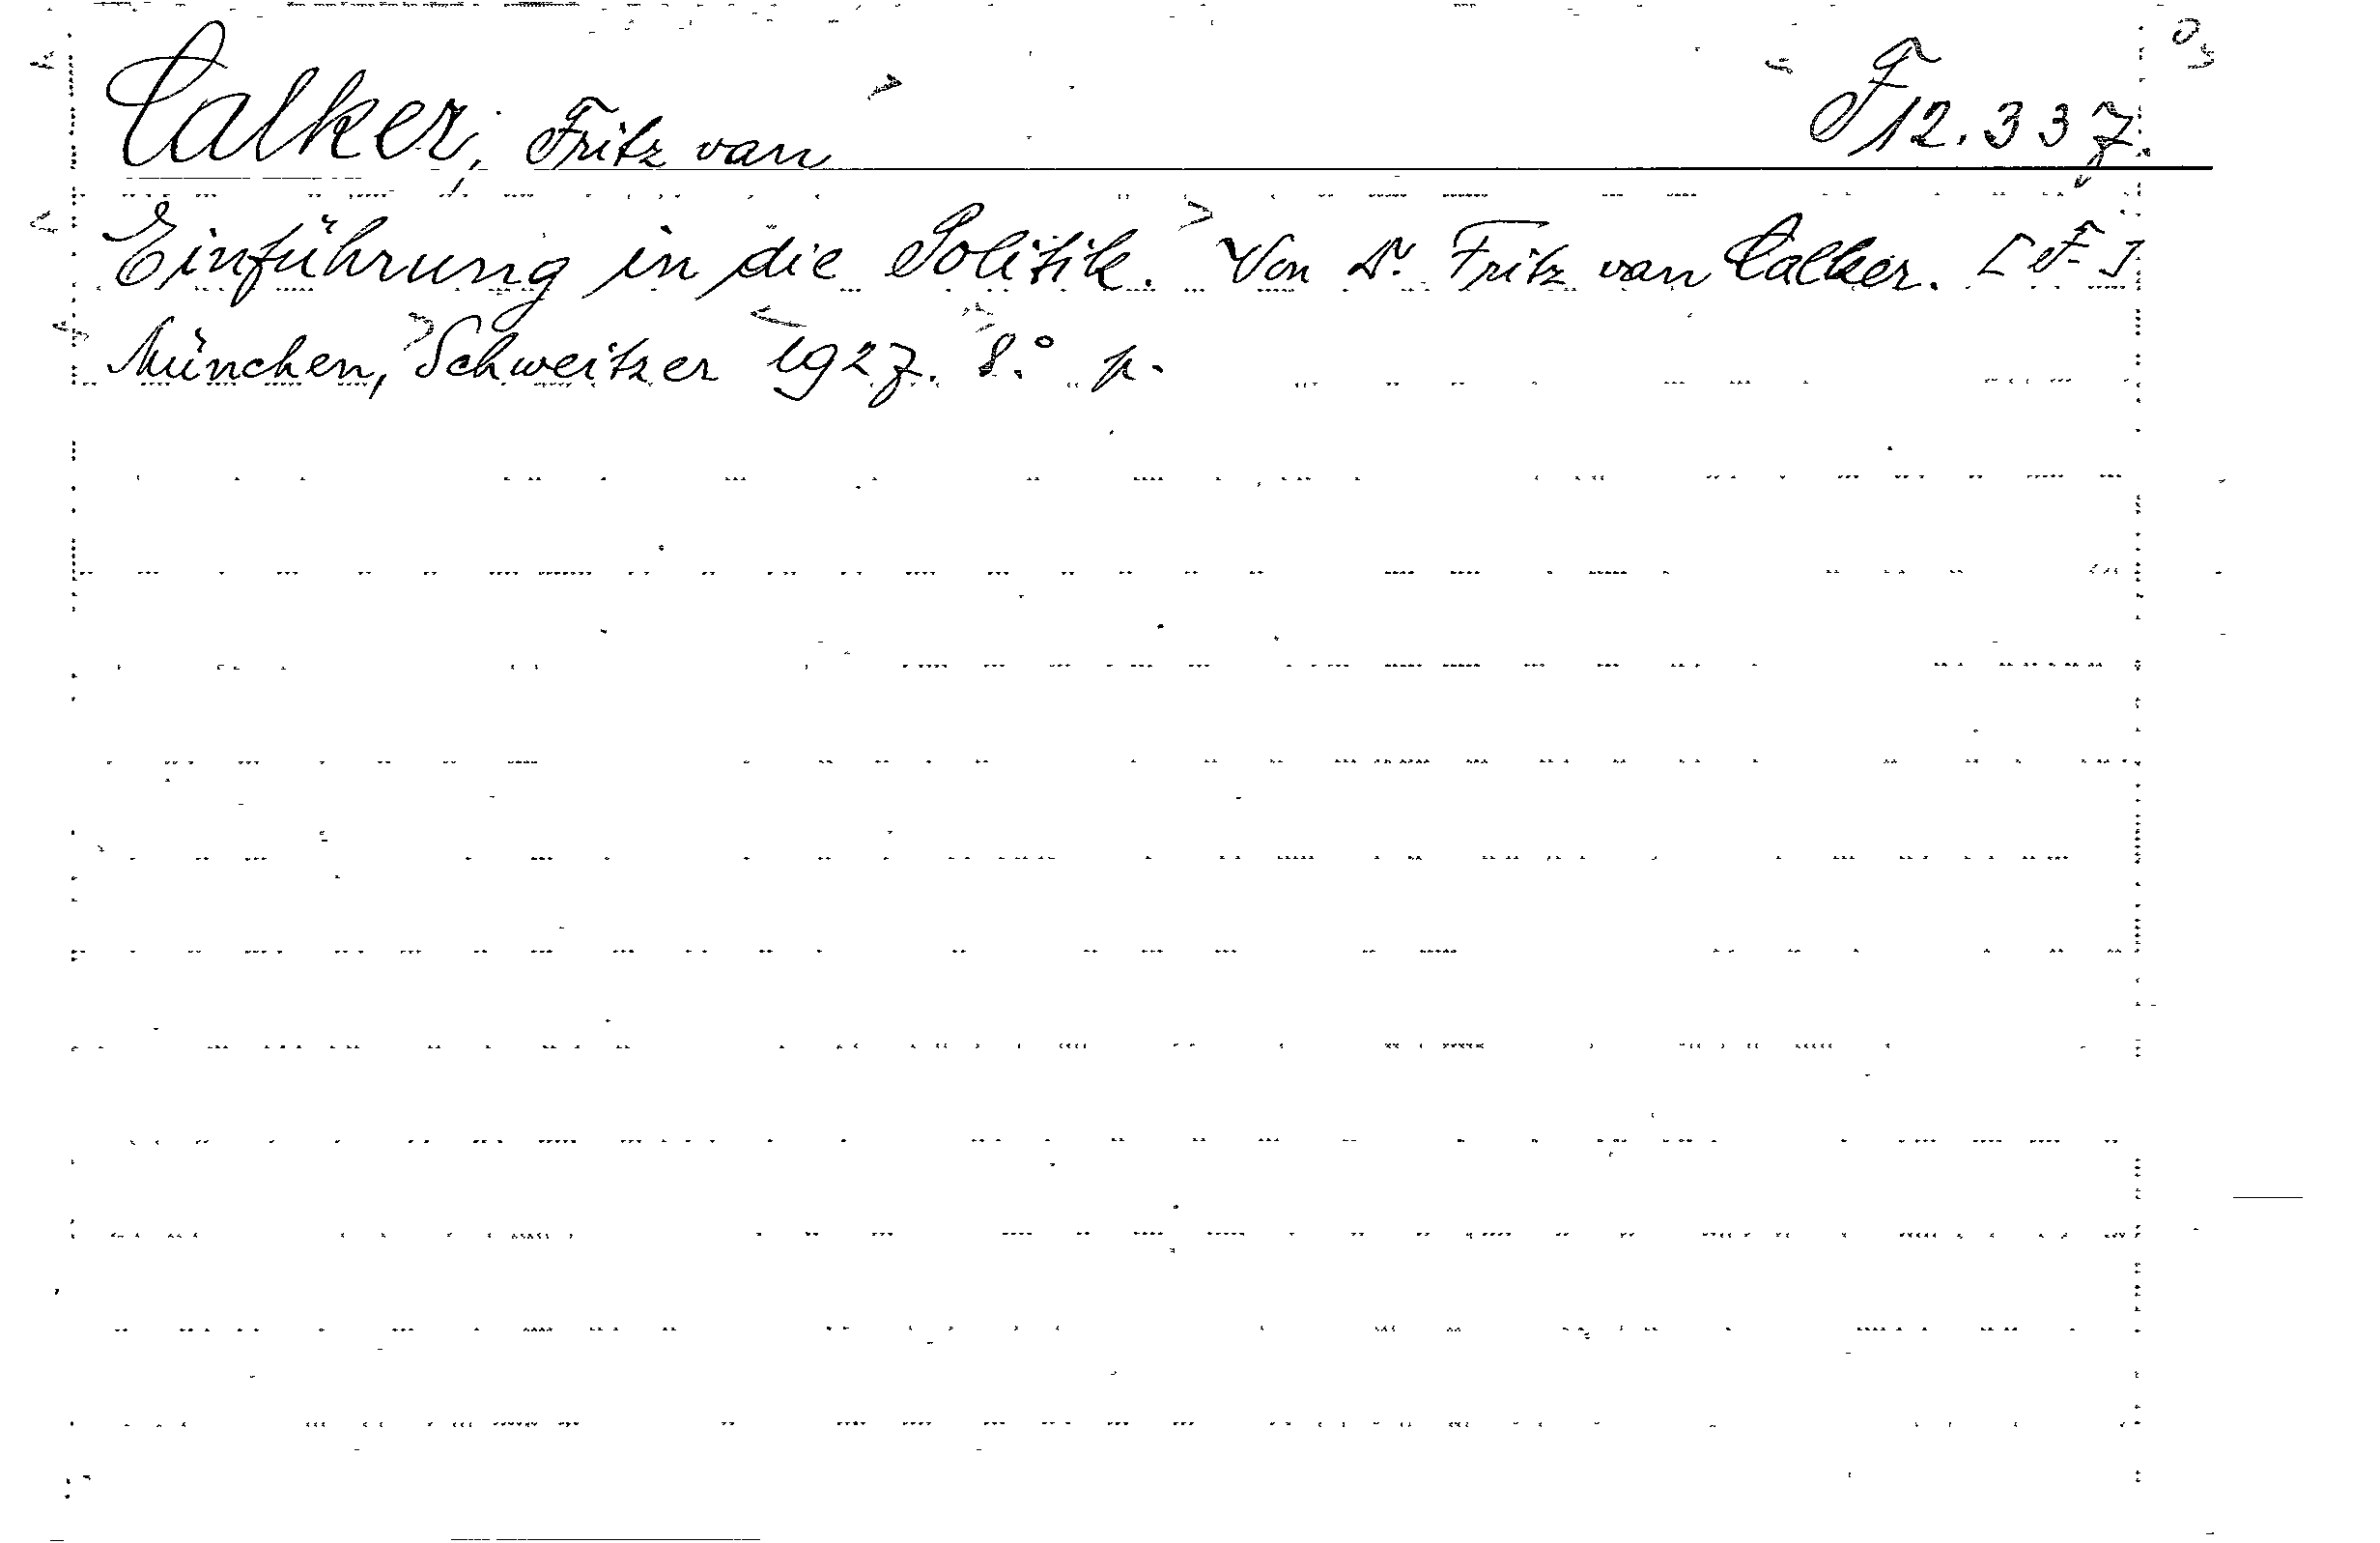 Calker, Fritz van F 12.337.
Einführung in die Politik. Von Dr. Fritz van Calker. [F]
München, Schweitzer 1927. 8.° p.